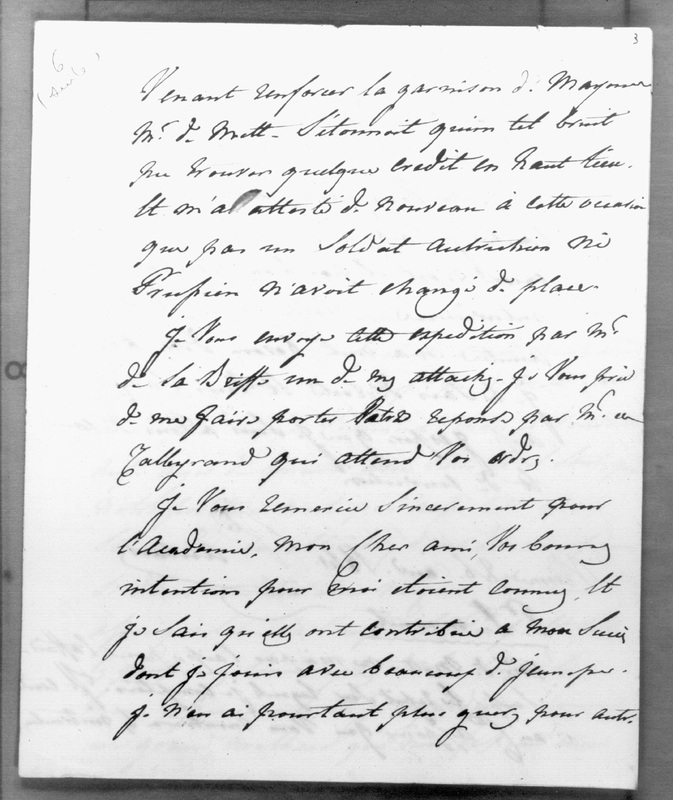 3
6
(suite)
Venant renforcer la garnison de Mayence.
Mr. de Mett- s'étonnoit qu'un tel bruit
pu trouver quelque credit en haut lieu.
Et m'a attesté de nouveau à cette occasion
que pas un Soldat autrichien ni
Prussien n'avoit changé de place.
je Vous envoye cette expedition par Mr.
de La Briffe un de mes attachés. je Vous prie
de me faire porter Votre reponse par Mr. de
Talleyrand qui attend Vos ordres.
je Vous remercie sincerement pour
l'Academie, mon Cher ami, Vos bonnes
intentions pour moi étoient connues, Et
je sais qu'elles ont contribué a mon Succès
dont je jouis avec beaucoup de jeunesse.
je n'en ai pourtant plus guere pour autre